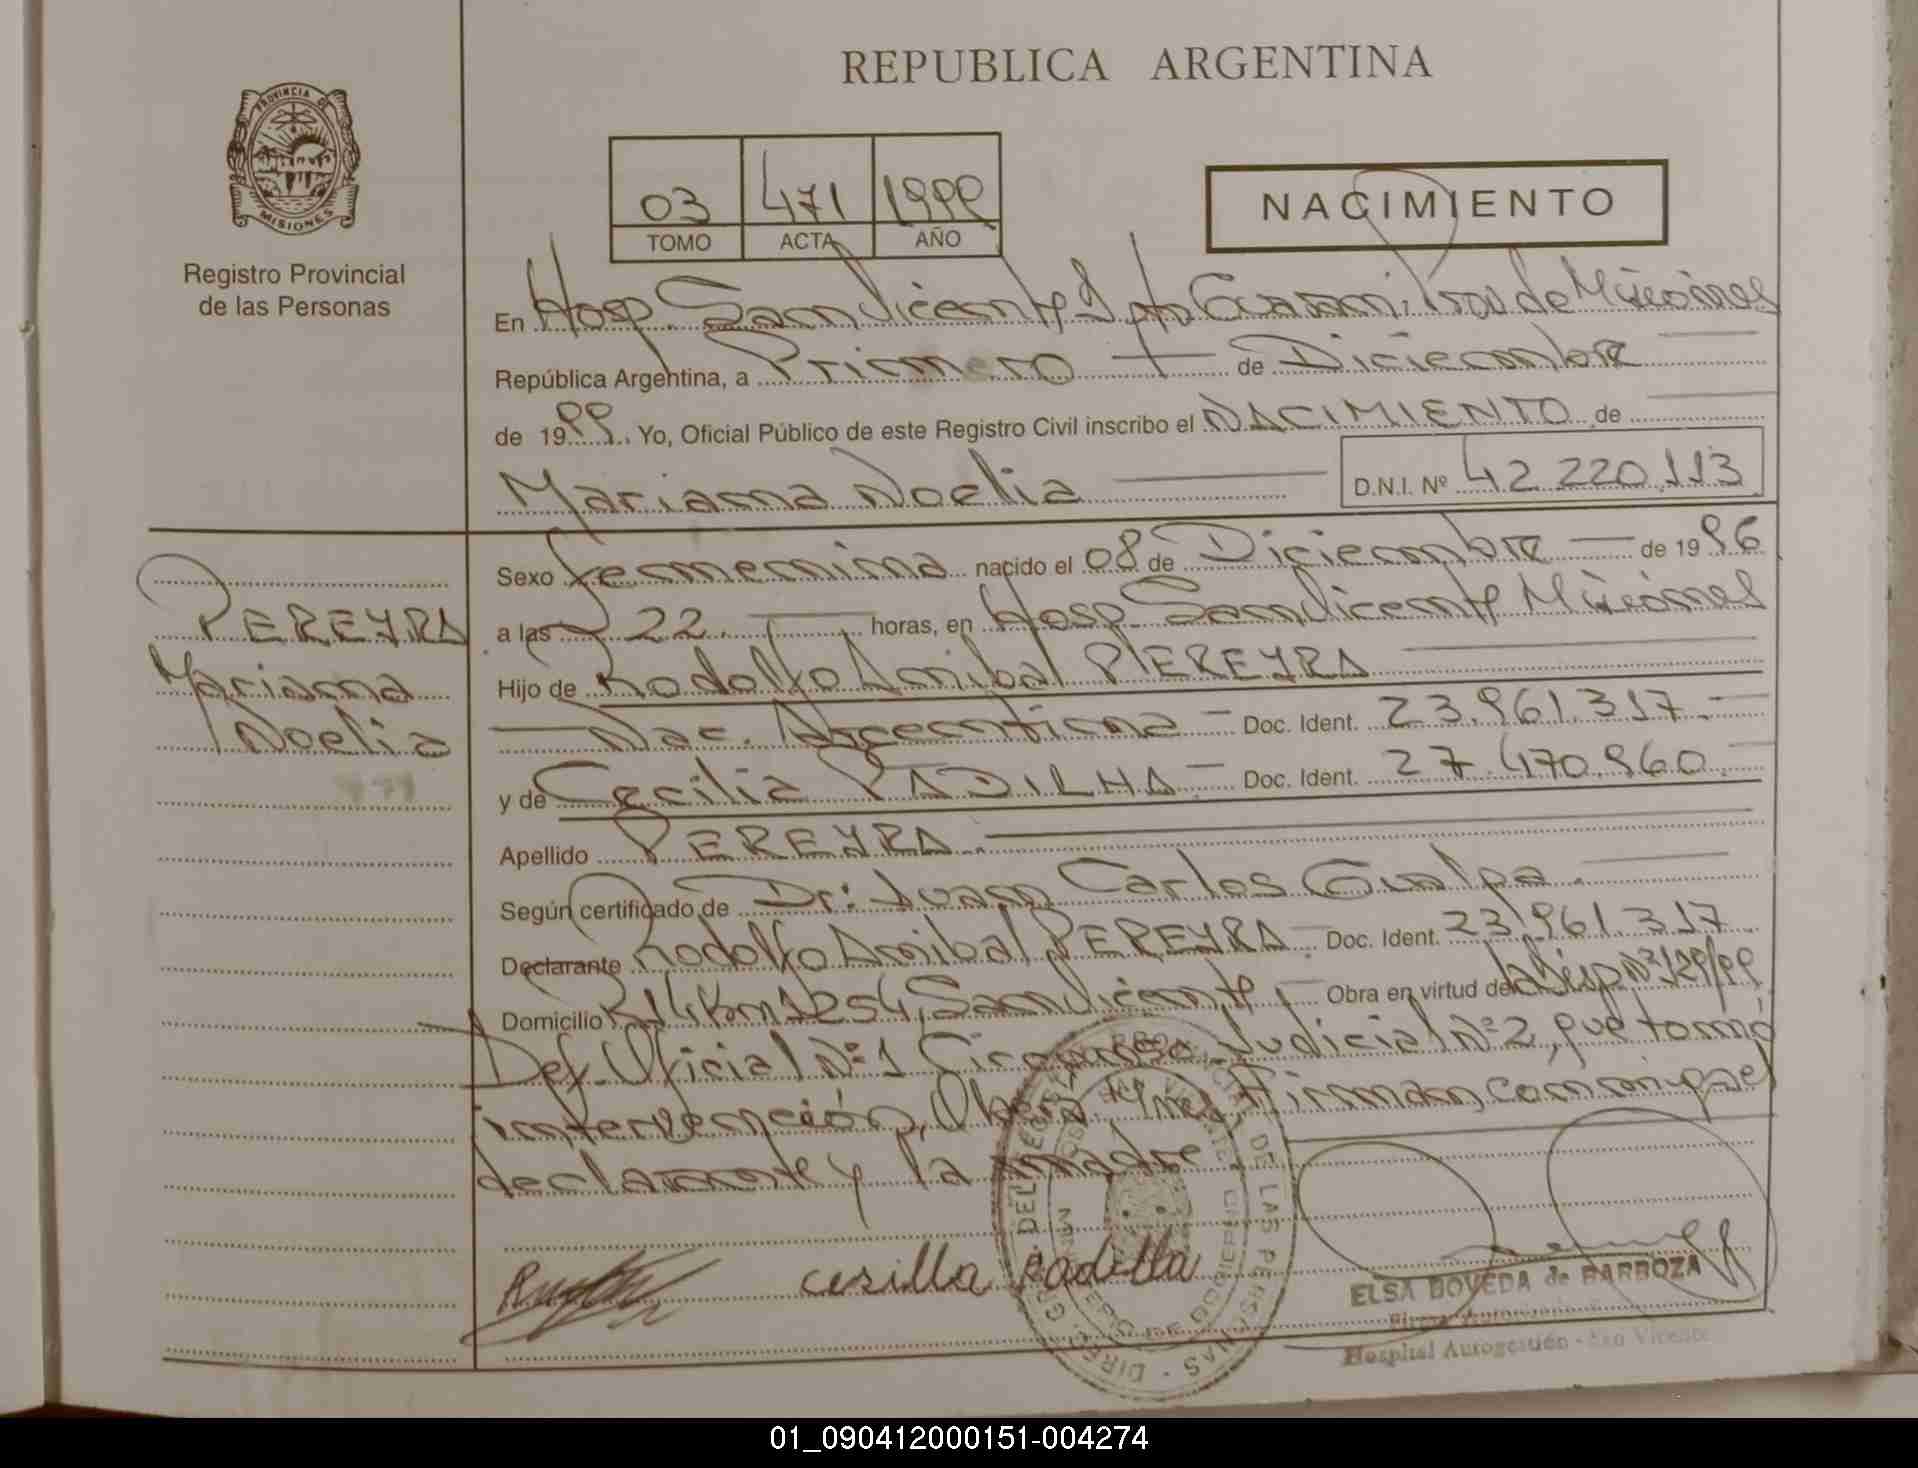 REPUBLICA ARGENTINA
PROVINCIA DE
MISIONES
Registro Provincial
de las Personas
03 471 1999
TOMO ACTA AÑO
NACIMIENTO
En Hosp San Vicente Dpto Guaraní, Prov de Misiones
República Argentina, a Primero de Diciembre
de 1999. Yo, Oficial Público de este Registro Civil inscribo el NACIMIENTO de
Mariana Noelia D.N.I. Nº 42 220.113
Sexo femenina nacido el 08 de Diciembre de 1996
a las 22. horas, en Hosp San Vicente Misiones
Hijo de Rodolfo Anibal PEREYRA
Nac. Argentina Doc. Ident. 23.961.317.
y de Cecilia PADILHA Doc. Ident. 27.470.960.
Apellido PEREYRA.
Según certificado de Dr: Juan Carlos Gualpa.
Declarante Rodolfo Anibal PEREYRA Doc. Ident. 23.961.317
Domicilio R14 Km 1254, San Vicente Obra en virtud de la Disp Nº 129/99
Def. Oficial Nº 1 Circunsc. Judicial Nº 2, que tomó
intervención, Oberá Mnes, Firman, conmigo el
declarante y la madre
PEREYRA
Mariana
Noelia
cesilla Padilla
ELSA BOVEDA de BARBOZA
Firma Autorizada
Hospital Autogestión - San Vicente
DE LAS PERSONAS
01_090412000151-004274